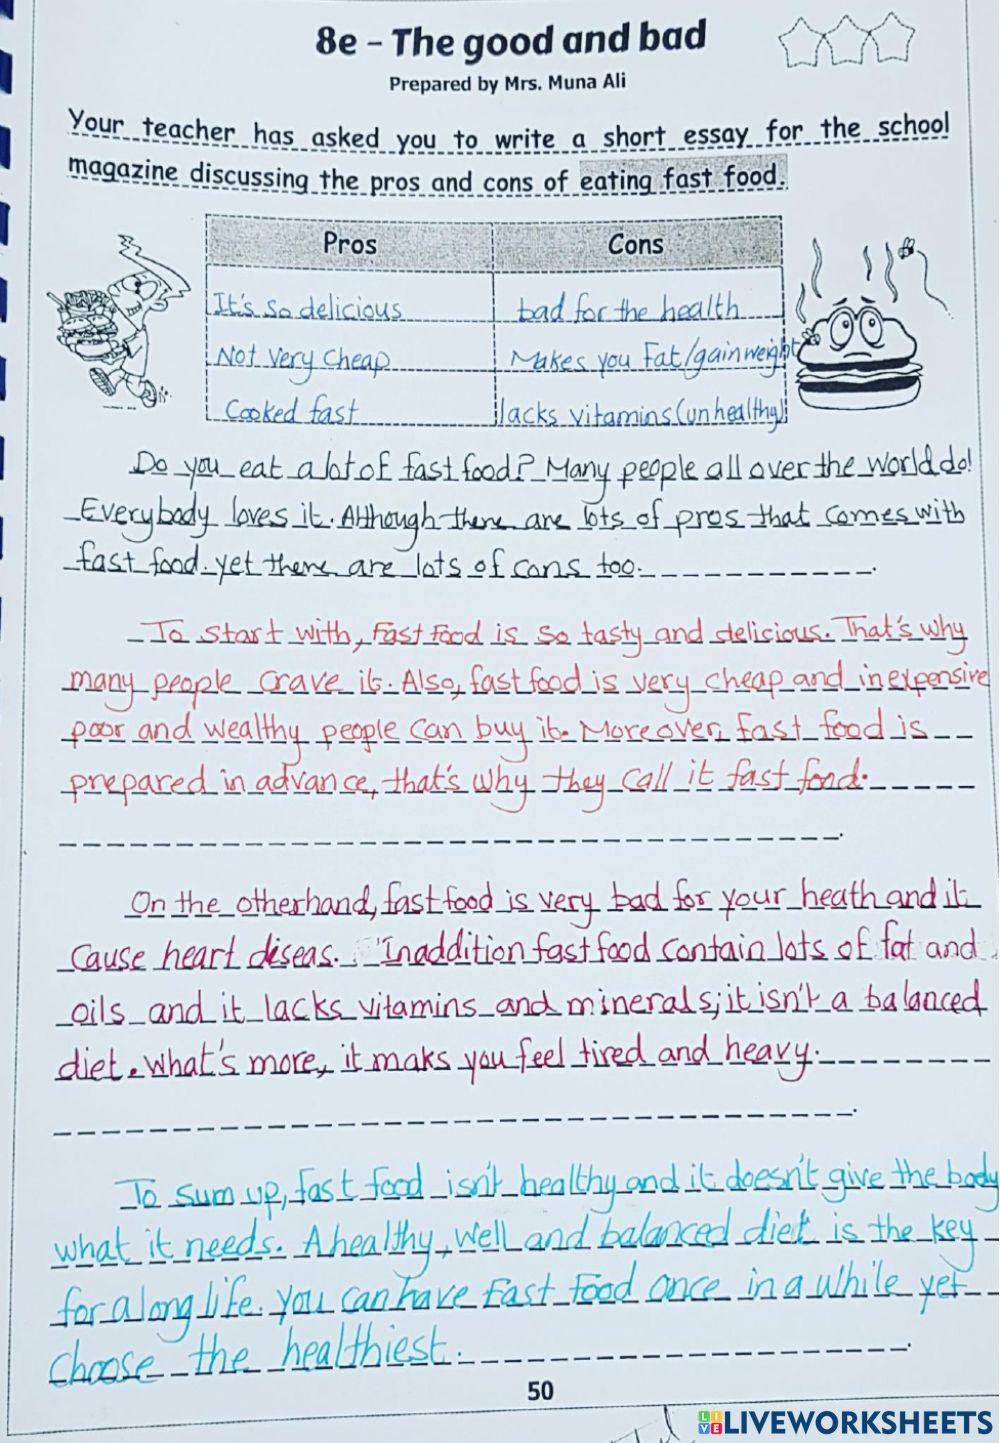 8e - The good and bad
Prepared by Mrs. Muna Ali
Your teacher has asked you to write a short essay for the school
magazine discussing the pros and cons of eating fast food.
Pros Cons
It's so delicious bad for the health
Not very cheap Makes you Fat/gain weight
Cooked fast lacks vitamins (unhealthy)
Do you eat a lot of fast food? Many people all over the world do!
Everybody loves it. Although there are lots of pros that comes with
fast food. yet there are lots of cons too.
To start with, Fast Food is so tasty and delicious. That's why
many people crave it. Also, fast food is very cheap and inexpensive
poor and wealthy people can buy it. Moreover, fast food is
prepared in advance, that's why they call it fast food.
On the otherhand, fast food is very bad for your heath and it
cause heart diseas. In addition fast food contain lots of fat and
oils and it lacks vitamins and minerals; it isn't a balanced
diet. what's more, it maks you feel tired and heavy.
To sum up, fast food isn't healthy and it doesn't give the body
what it needs. A healthy, well and balanced diet is the key
for a long life. you can have Fast Food once in a while yet
choose the healthiest.
50
LIVEWORKSHEETS